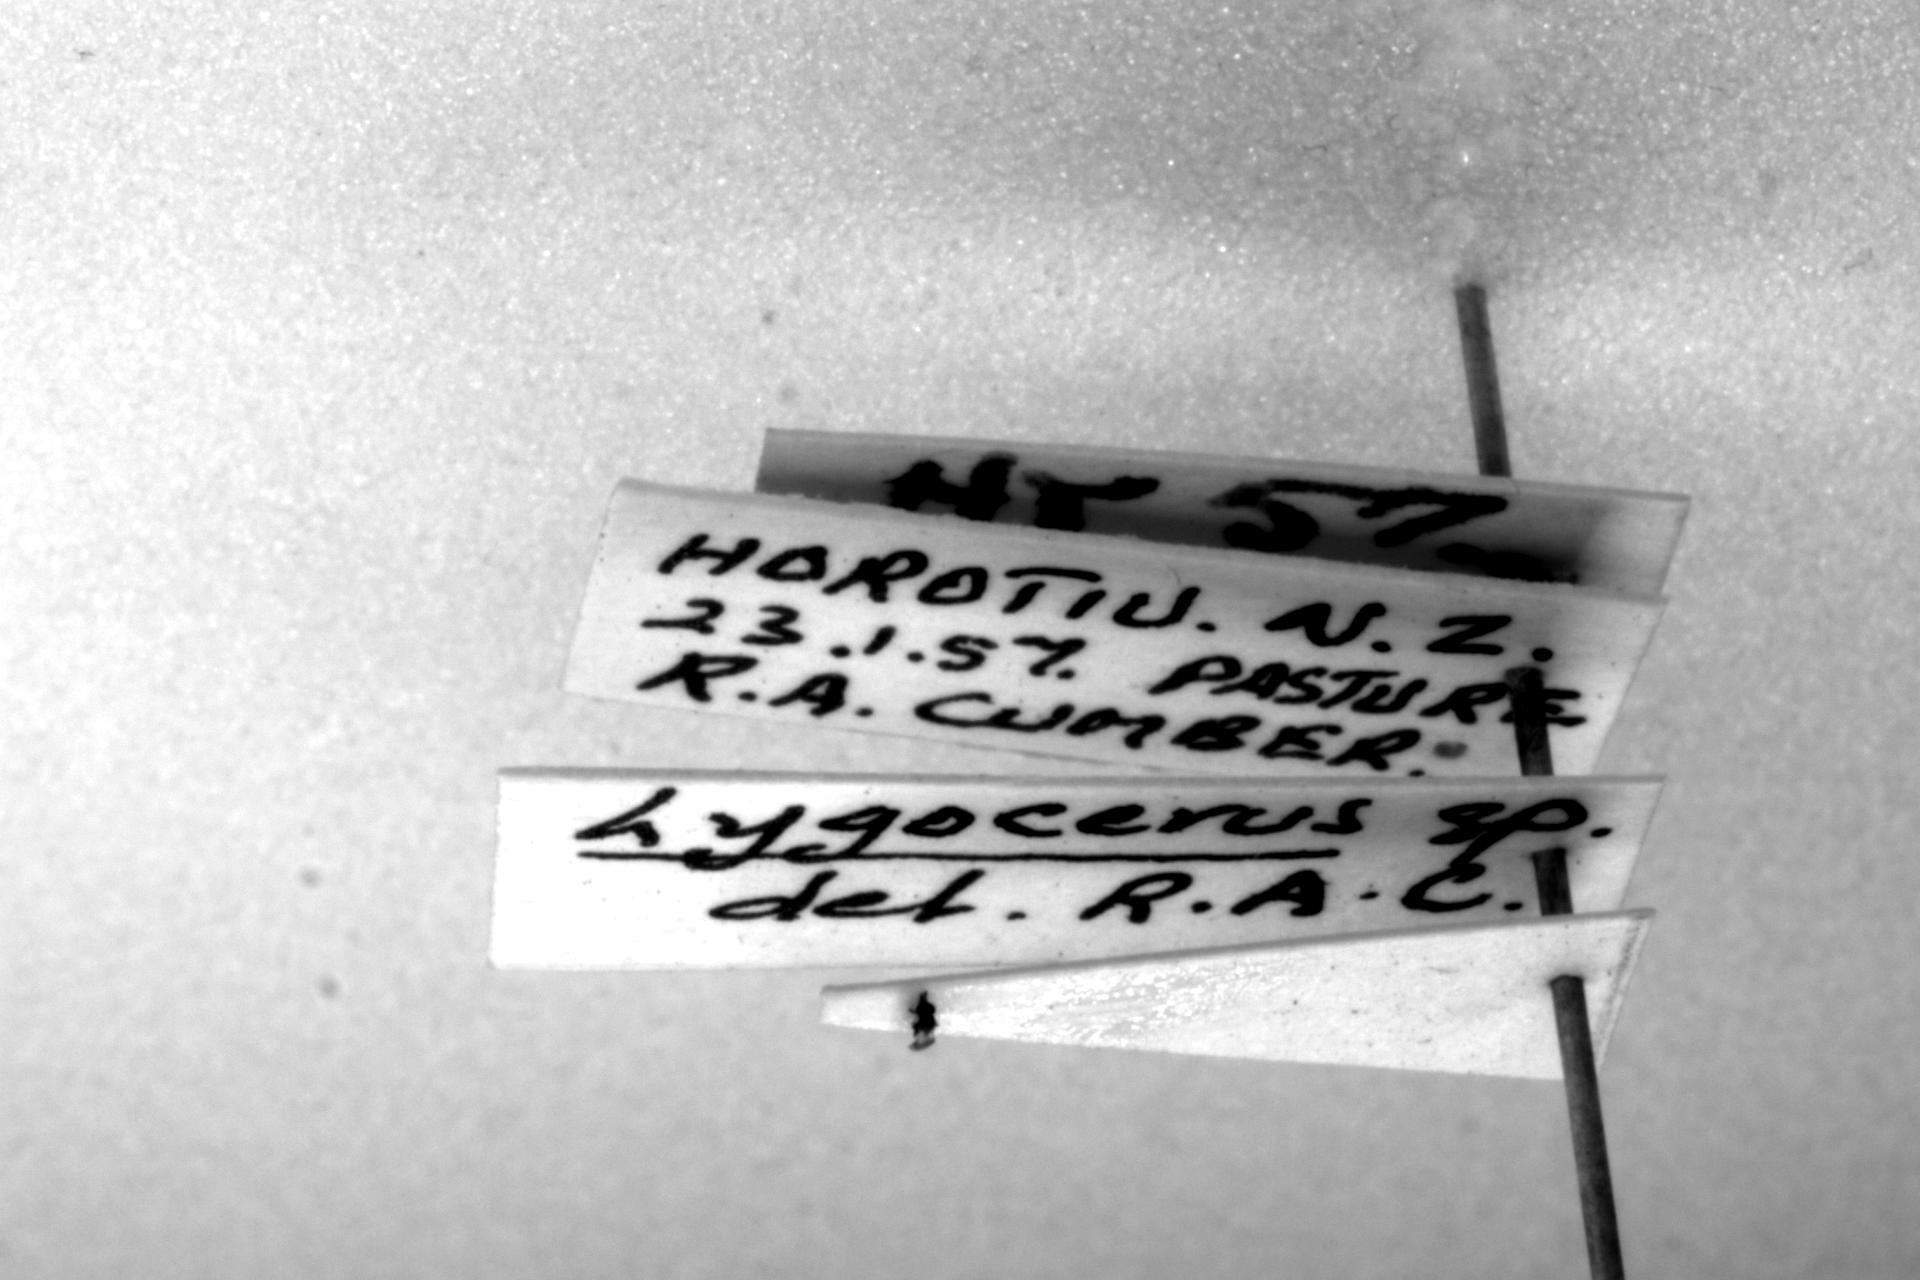 HT 57
HOROTIU. N.Z.
23.1.57. PASTURE
R.A. CUMBER.
Lygocerus sp.
det. R.A.C.